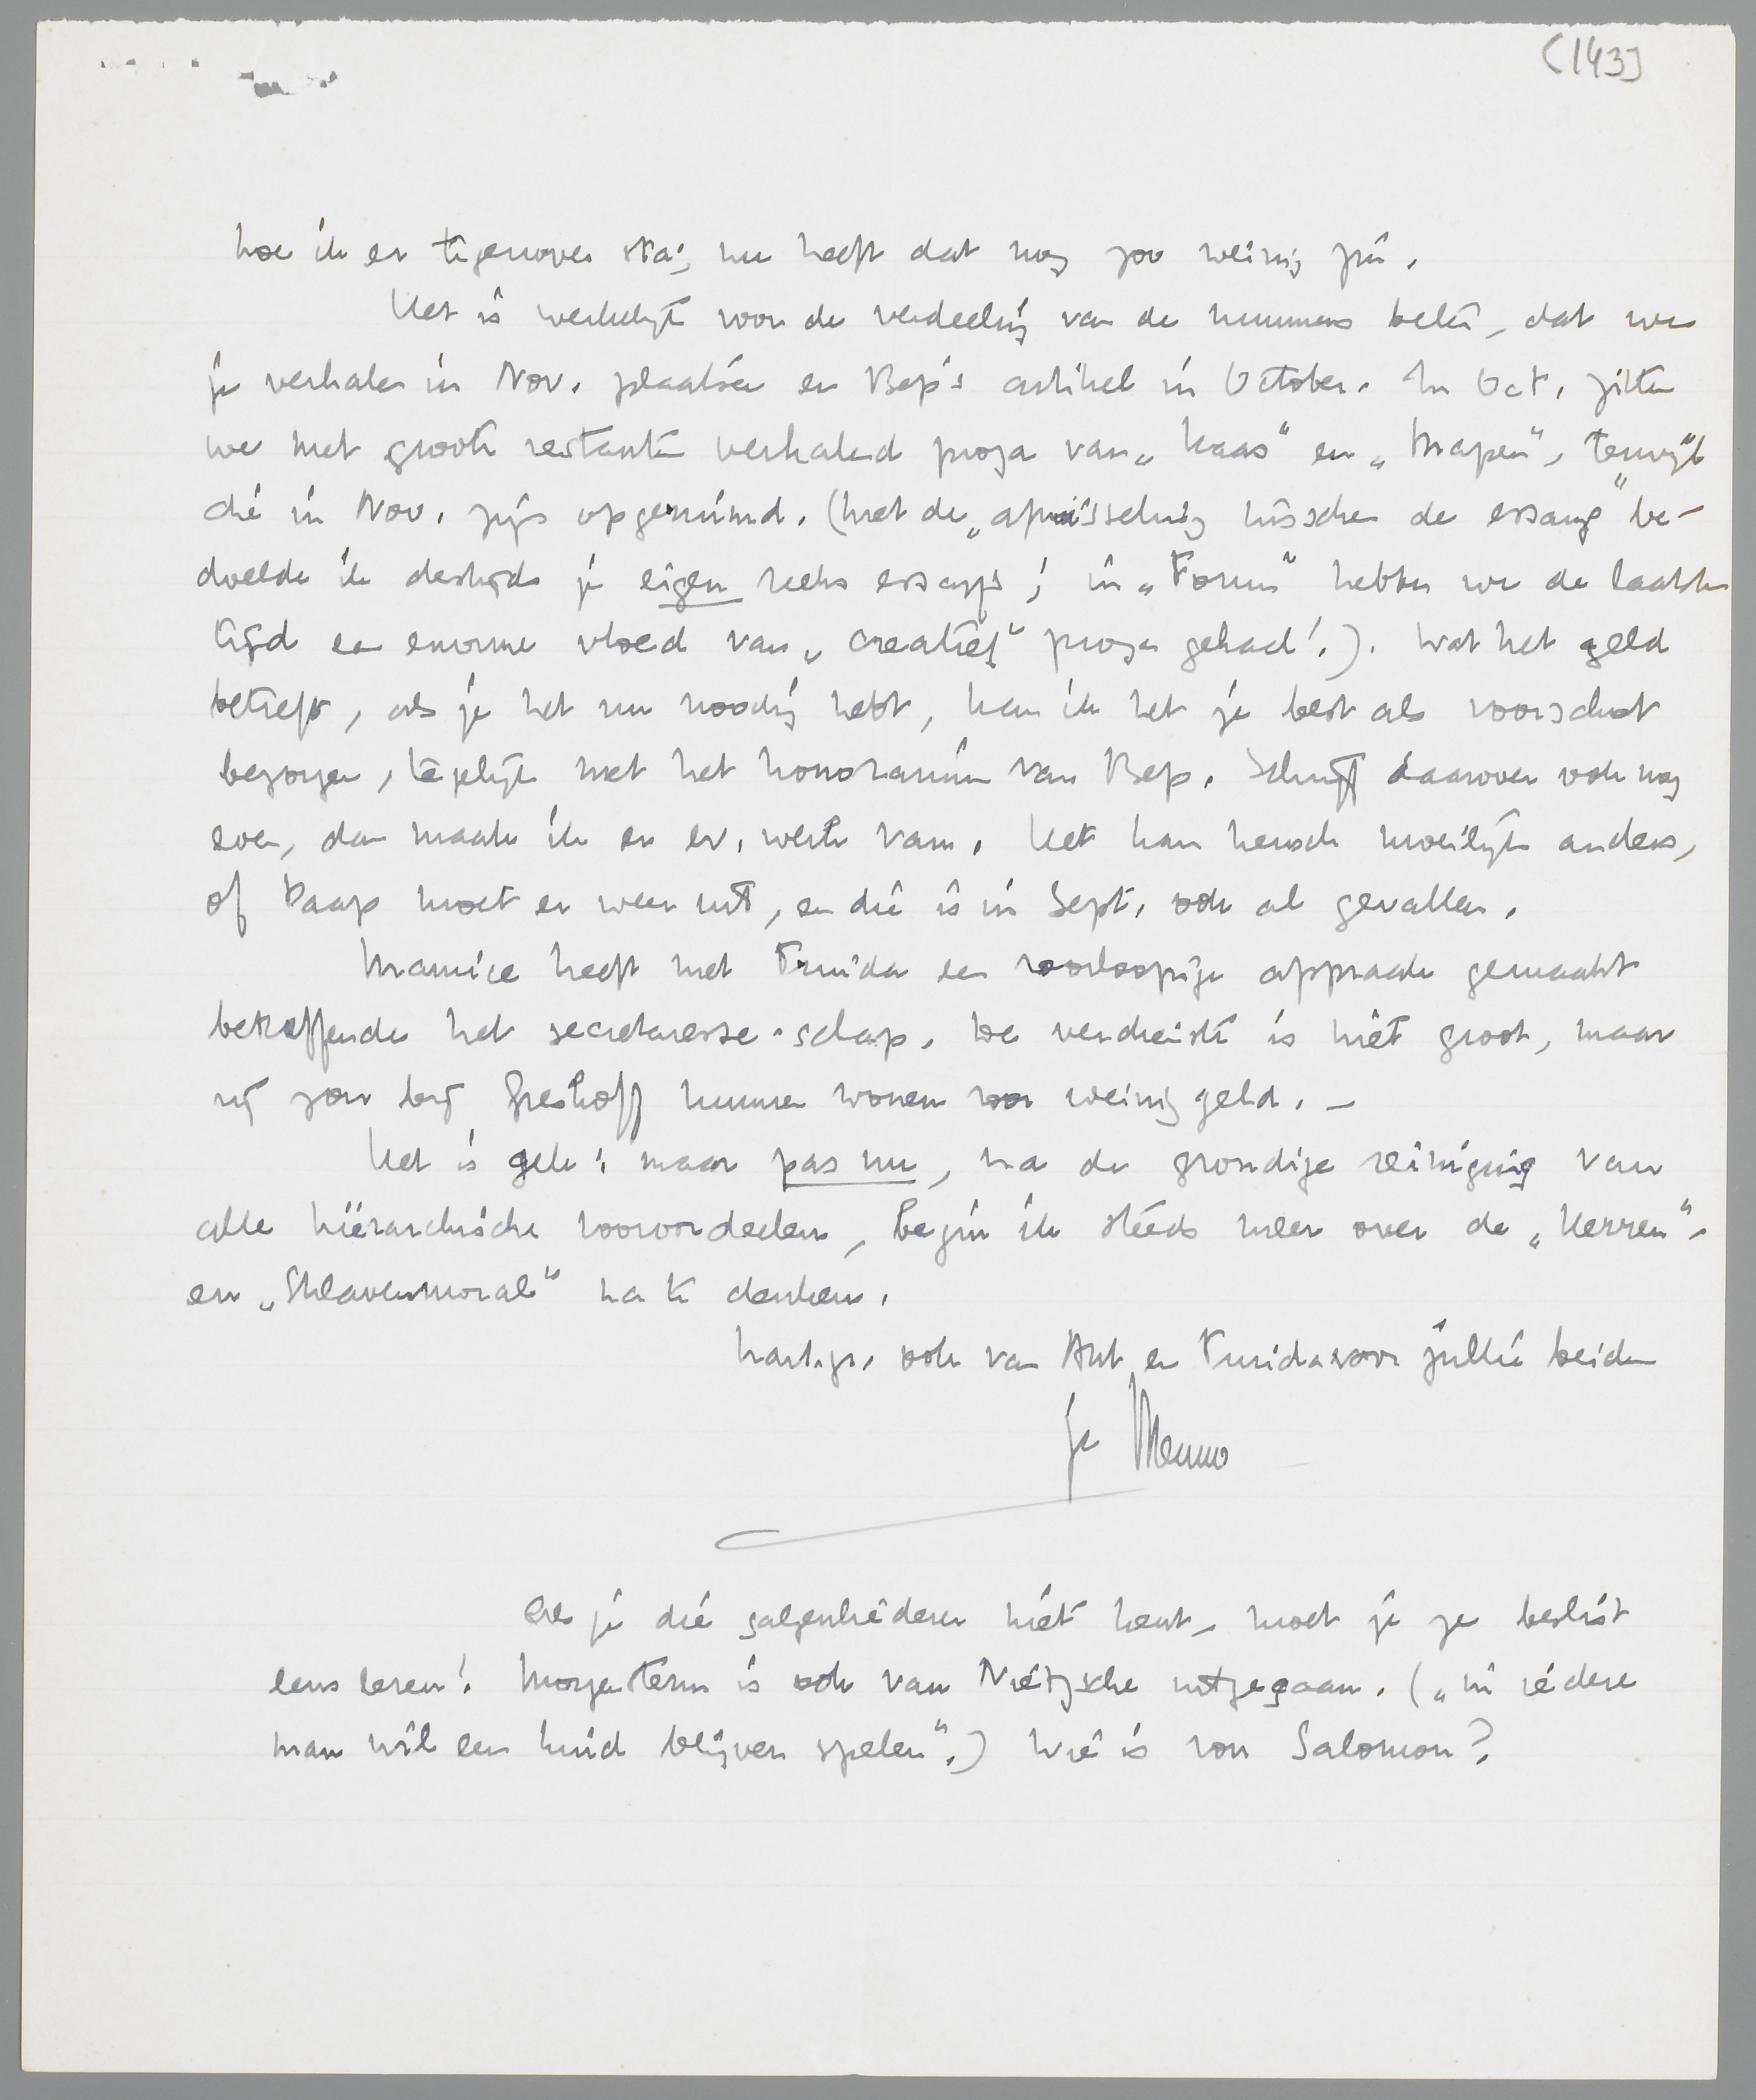 (143)
hoe ik er tegenover sta; nu heeft dat nog zoo weinig zin.
Het is werkelijk voor de verdeeling van de nummers beter, dat we
je verhalen in Nov. plaatsen en Bep's artikel in October. In Oct. zitten
we met groote restanten verhalend proza van „Kaas" en „Wapen", terwijl
die in Nov. zijn opgeruimd. (met de „afwisseling tusschen de essays" be-
doelde ik destijds je eigen reeks essays; in „Forum" hebben we de laatste
tijd een enorme vloed van „creatief" proza gehad!). Wat het geld
betreft, als je het nu noodig hebt, kan ik het je best als voorschot
bezorgen, tegelijk met het honorarium van Bep. Schrijf daarover ook nog
even, dan maak ik er ev. werk van. Het kan heusch moeilijk anders,
of Paap moet er weer uit, en die is in Sept. ook al gevallen.
Maurice heeft met Truida een voorloopige afspraak gemaakt
betreffende het secretaresse-schap. De verdienste is niet groot, maar
zij zou bij Greshoff kunnen wonen voor weinig geld. –
Het is gek: maar pas nu, na de grondige reiniging van
alle hiërarchische vooroordeelen, begin ik steeds meer over de „Herren"-
en „Sklavenmoral" na te denken.
hart. gr. ook van Ant en Truida voor jullie beiden
je Menno
Als je die galgenliederen niet kent, moet je ze beslist
eens lezen! Morgenstern is ook van Nietzsche uitgegaan. („in iedere
man wil een kind blijven spelen".) Wie is von Salomon?